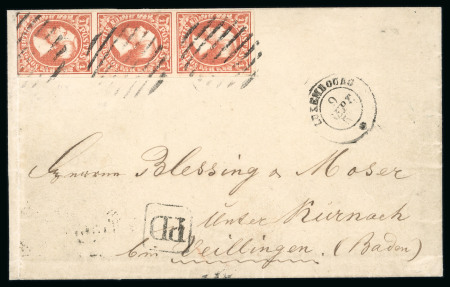 LUXEMBOURG
9
SEPT.
Herren Blessing & Moser
Unter Kürnach
PD
bei Veillingen. (Baden)